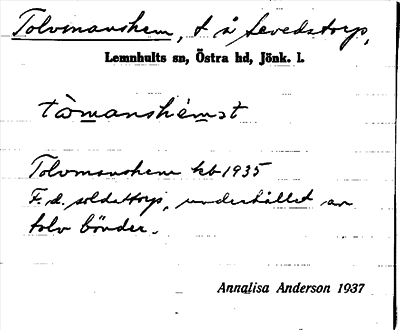 Tolvmanshem, t å Sevedstorp,
Lemnhults sn, Östra hd, Jönk. l.
tòmanshèmət
Tolvmanshem kb 1935
F. d. soldattorp, underhållet av
tolv bönder.
Annalisa Anderson 1937